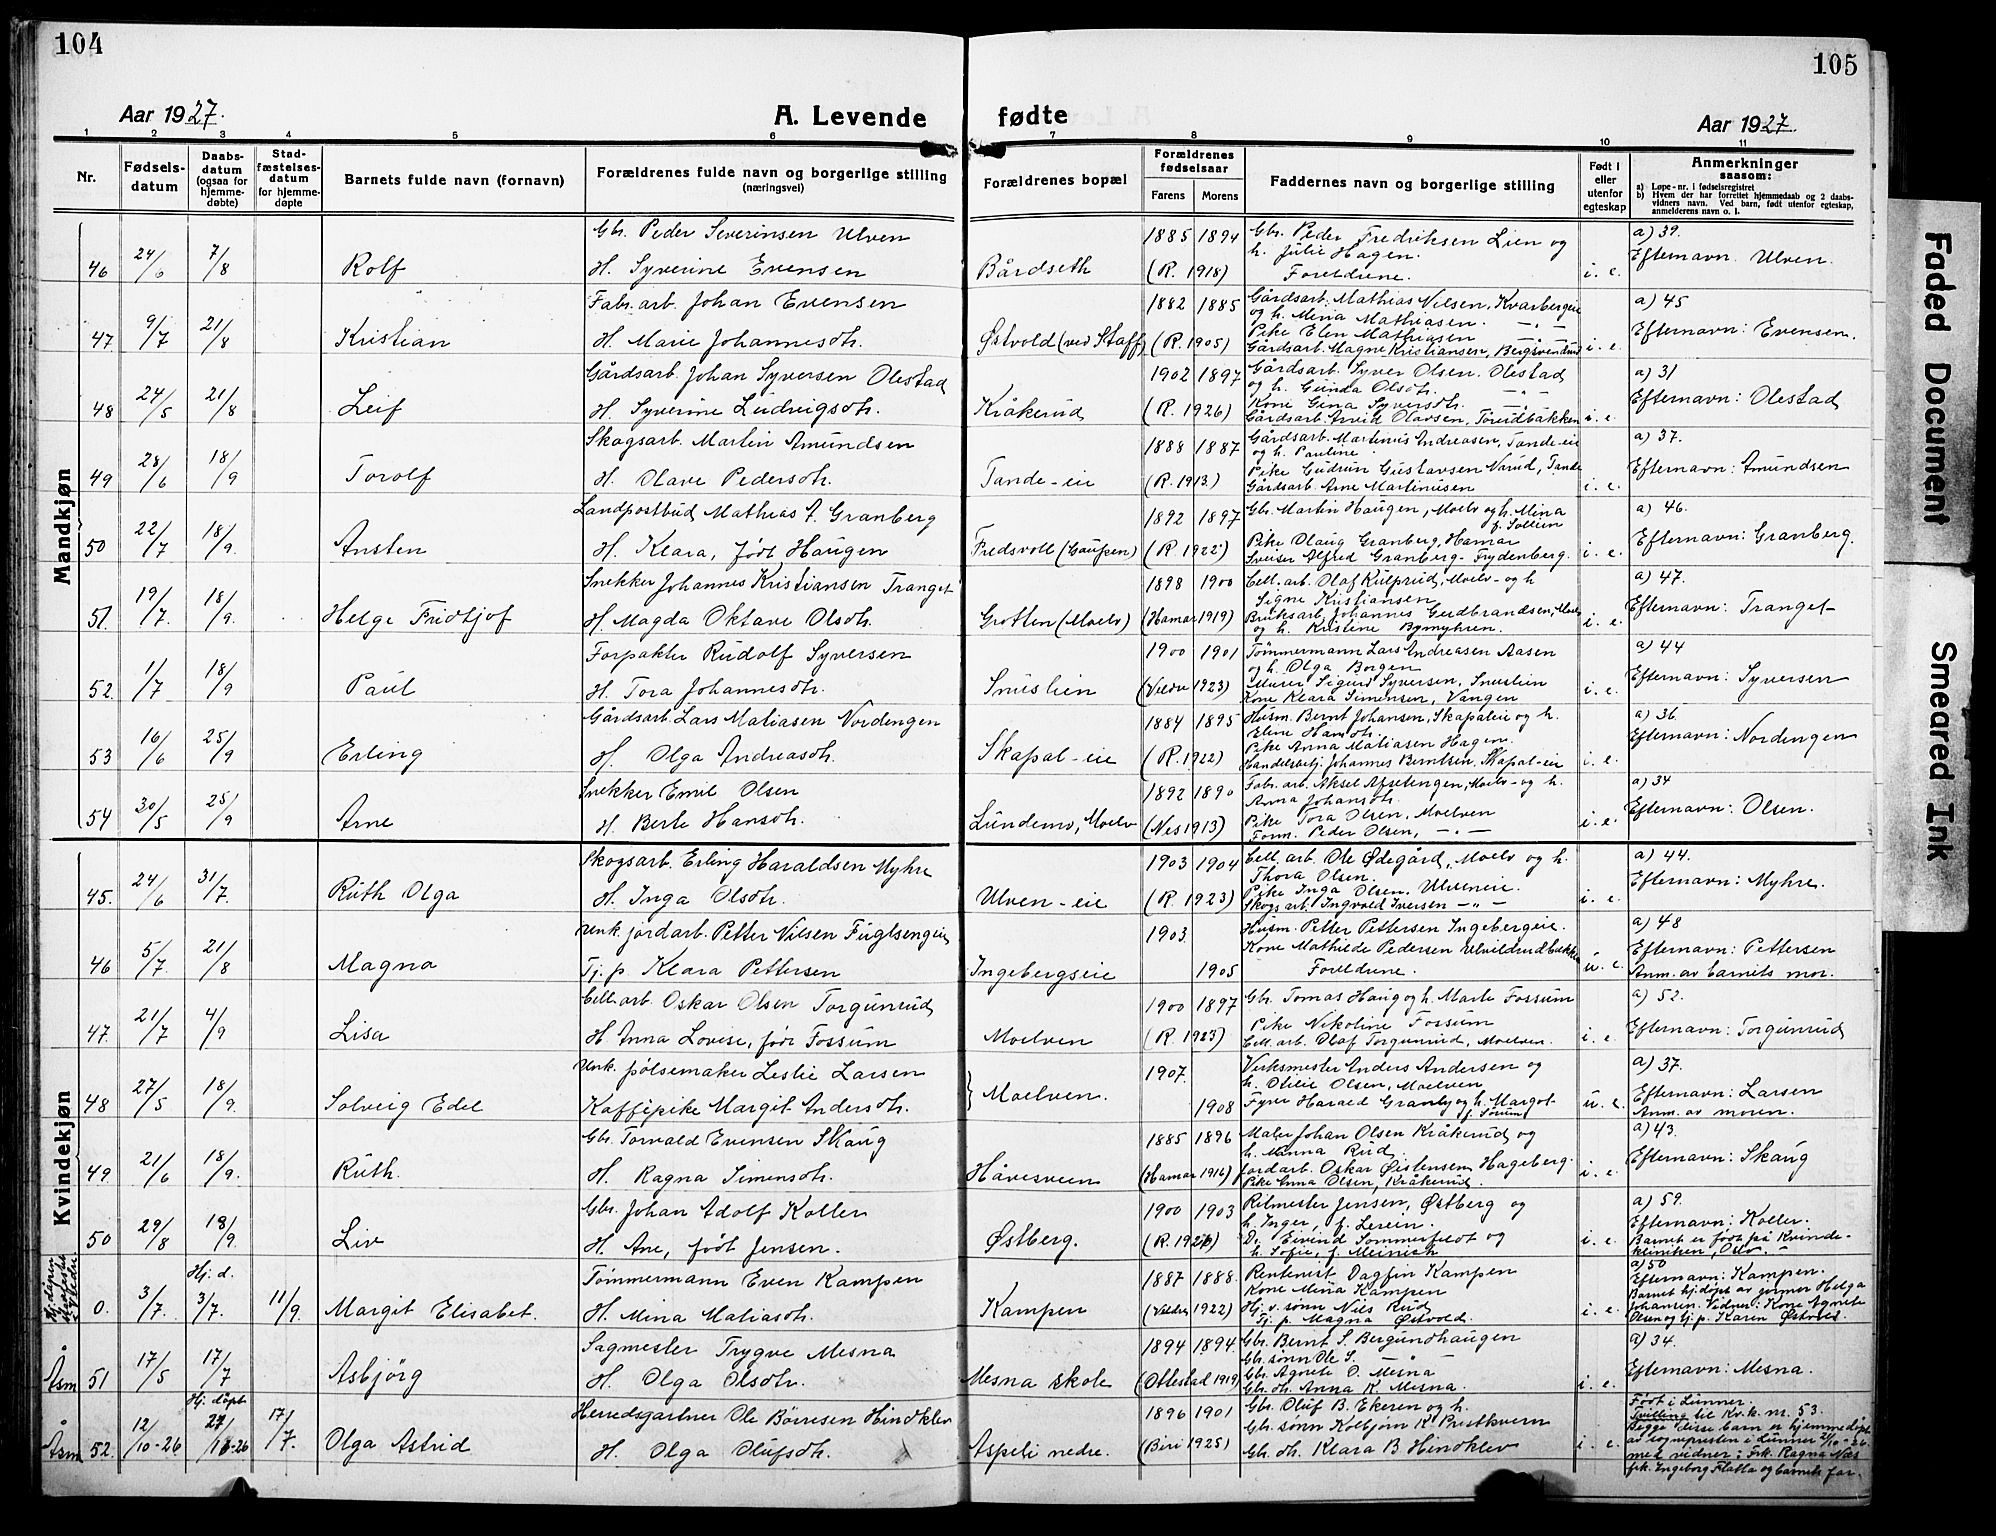 104
105
Aar 1927.
A. Levende
fødte
Aar 1927.
1 2 3 4 5 6 7 8 9 10 11
Nr.
Fødsels-
datum
Daabs-
datum
(ogsaa for
hjemme-
døbte)
Stad-
fæstelses-
datum
for hjemme-
døpte
Barnets fulde navn (fornavn)
Forældrenes fulde navn og borgerlige stilling
(næringsvei)
Forældrenes bopæl
Forældrenes
fødselsaar
Farens Morens
Faddernes navn og borgerlige stilling
Født i
eller
utenfor
egteskap
Anmerkninger
saasom:
a) Løpe-nr. i fødselsregistret
b) Hvem der har forrettet hjemmedaab og 2 daabs-
vidners navn. Ved barn, født utenfor egteskap,
anmelderens navn o. l.
Mandkjøn
46 24/6 7/8 Rolf
Gbr. Peder Severinsen Ulven
H. Syverine Evensen
Bårdseth
1885 1894
(R. 1918)
Gbr. Peder Fredriksen Lien og
h. Julie Hagen.
Foreldrene.
i. e.
a) 39.
Efternavn Ulven.
47 9/7 21/8 Kristian
Fabr. arb. Johan Evensen
H. Marie Johannesdtr.
Østvold (ved Staff)
1882 1885
(R. 1905)
Gårdsarb. Mathias Nilsen, Kvarbergeie
og h. Mina Mathiasen. -„-
Pike Elen Mathiasen -„-
Gårdsarb. Magne Kristiansen, Bergsvendrud
i. e.
a) 45
Efternavn: Evensen.
48 24/5 21/8 Leif
Gårdsarb. Johan Syversen Olestad
H. Syverine Ludvigsdtr.
Kråkerud
1902 1897
(R. 1926)
Gårdsarb. Syver Olsen. Olestad
og h. Gunda Olsdtr. -„-
Kone Gina Syversdtr. -„-
Gårdsarb. Arvid Olavsen, Torudbakken
i. e.
a) 31
Efternavn: Olestad
49 28/6 18/9 Torolf
Skogsarb. Martin Amundsen
H. Olave Pedersdtr.
Tande-eie
1888 1887
(R. 1913)
Gårdsarb. Martinus Andreasen, Tande-eie
og h. Pauline.
Pike Gudrun Gustavsen Narud, Tande
Gårdsarb. Arne Martinusen
i. e.
a) 37.
Efternavn: Amundsen
50 22/7 18/9. Ansten
Landpostbud Mathias A. Granberg
H. Klara, født Haugen
Fredsvoll (Gaupen)
1892 1897
(R. 1922)
Gbr. Martin Haugen, Moelv og h. Mina
f. Sollien
Pike Olaug Granberg, Hamar
Sveiser Alfred Granberg - Frydenberg.
i. e.
a) 46.
Efternavn: Granberg.
51. 19/7. 18/9. Helge Fridtjof
Snekker Johannes Kristiansen Tranget
H. Magda Oktave Olsdtr.
Grotten (Moelv)
1898 1900
(Hamar 1919)
Cell. arb. Olaf Kulprud, Moelv- og h
Signe Kristiansen
Bruksarb. Johannes Gudbrandsen, Moelv
og h. Kristine Bymyhren.
i. e.
a) 47.
Efternavn: Tranget-
52. 1/7 18/9 Paul
Forpakter Rudolf Syversen
H. Tora Johannesdtr.
Snuslien
1900 1901
(Veldre 1923)
Tømmermann Lars Andreasen Aasen
og h. Olga Borgen
Murer Sigurd Syversen, Snuslien
Kone Klara Simensen, Vangen
i. e.
a) 44
Efternavn: Syversen
53 16/6 25/9 Erling
Gårdsarb. Lars Matiasen Nordengen
H. Olga Andreasdtr.
Skapal-eie
1884 1895
(R. 1922)
Husm. Bernt Johansen, Skapaleie og h.
Eline Hansdtr.
Pike Anna Matiasen Hagen.
Handelsbetj. Johannes Berntsen, Skapal-eie
i. e.
a) 36.
Efternavn: Nordengen
54 30/5 25/9 Arne
Snekker Emil Olsen
H. Berte Hansdtr.
Lundemo, Moelv
1892 1890
(Nes 1913)
Fabr. arb. Aksel Afsetengen, Moelv- og h.
Anna Johansdtr.
Pike Tora Olsen, Moelven
Form. Peder Olsen, -„-
i. e.
a) 34
Efternavn: Olsen.
Kvindekjøn
45. 24/6 31/7. Ruth Olga
Skogsarb. Erling Haraldsen Myhre
H. Inga Olsdtr.
Ulven-eie
1903 1904
(R. 1923)
Cell. arb. Ole Ødegård, Moelv og h.
Thora Olsen.
Pike Inga Olsen, Ulveneie.
Skogsarb. Ingvold Iversen -„-
i. e.
a) 44.
Efternavn: Myhre.
46 5/7. 21/8 Magna
Unk. jordarb. Petter Nilsen Fuglsengen
Tj. p. Klara Pettersen
Ingebergseie
1903.
1905
Husm. Petter Pettersen Ingebergeie.
Kone Mathilde Pedersen Ulvildrudbakken
Foreldrene.
u. e.
a) 48
Efternavn: Pettersen
Anm. av barnets mor.
47. 21/7 4/9 Lisa
Cell. arb. Oskar Olsen Torgunrud
H. Anna Lovise, født Fossum
Moelven
1900 1897
(R. 1923)
Gbr. Tomas Haug og h. Marte Fossum
Pike Nikoline Fossum
Cell. arb. Olaf Torgunrud, Moelven.
i. e.
a) 52.
Efternavn: Torgunrud
48 27/5 18/9. Solveig Edel
Unk. pølsemaker Leslie Larsen
Kaffépike Margit Andersdtr.
Moelven.
1907.
1908
Verksmester Anders Andersen og
h. Otilie Olsen, Moelven
Fyrb. Harald Granby og h. Margot
f. Sørum
u. e.
a) 37.
Efternavn: Larsen
Anm. av moren.
49. 21/6 18/9. Ruth.
Gbr. Torvald Evensen Skaug
H. Ragna Simensdtr.
Håvesveen
1885 1896
(Hamar 1916)
Maler Johan Olsen Kråkerud og
h. Minna Rud.
Jordarb. Oskar Øistensen Hageberg.
Pike Anna Olsen, Kråkerud.
i. e.
a) 43.
Efternavn: Skaug
50 29/8 18/9. Liv
Gbr. Johan Adolf Koller
H. Ane, født Jensen.
Østberg.
1900 1903
(R. 1926)
Ritmester Jensen, Østberg og
h. Inger, f. Lerein.
Dr. Eivind Sommerfeldt og
h. Sofie, f. Meinich
i. e.
a) 59.
Efternavn: Koller.
Barnet er født på Kvinde-
kliniken, Oslo. -
Hj. døpen
0. 3/7. Hj. d. 3/7. 11/9. Margit Elisabet.
Tømmermann Even Kampen
H. Mina Matiasdtr.
Kampen
1887 1888.
(Veldre 1922)
Rentenist Dagfin Kampen
Kone Mina Kampen
Hj. v. sønn Nils Rud
Tj. p. Magna Østvold.
i. e.
a) 50
Efternavn: Kampen.
Barnet hj. døpt av jormor Helga
Johansen. Vidner: Kone Agnete
Olsen og tj. p. Karen Østvold.
Åsm 51 17/5 17/7 Asbjörg
Sagmester Trygve Mesna
H. Olga Olsdtr.
Mesna skole
1894 1894.
(Ottestad 1919)
Gbr. Bernt S Bergundhaugen
Gbr. sønn Ole S. -„-
Gbr. Agnete O. Mesna
Gbr. dtr. Anna K. Mesna.
i. e.
a) 34.
Efternavn: Mesna.
Åsm 52. 12/10-26 Hj. døpt 27/10-26 17/7. Olga Astrid
Herredsgartner Ole Børresen Hindklev
H. Olga Olufsdtr.
Aspeli nedre.
1896 1901
(Biri 1925)
Gbr. Oluf B. Ekeren og h.
Gbr. sønn Kolbjørn K. Prestkvern
Gbr. dtr. Klara B Hindklev
i. e.
Født i Lunner.
Tvilling til Kv.k. nr. 53.
Begge disse barn er hjemmedøpt
av sognepresten i Lunner 27/10-26
med vidner: Frk. Ragna Næs
frk. Ingeborg Flatla og barnets far.
Faded Document
Smeared Ink